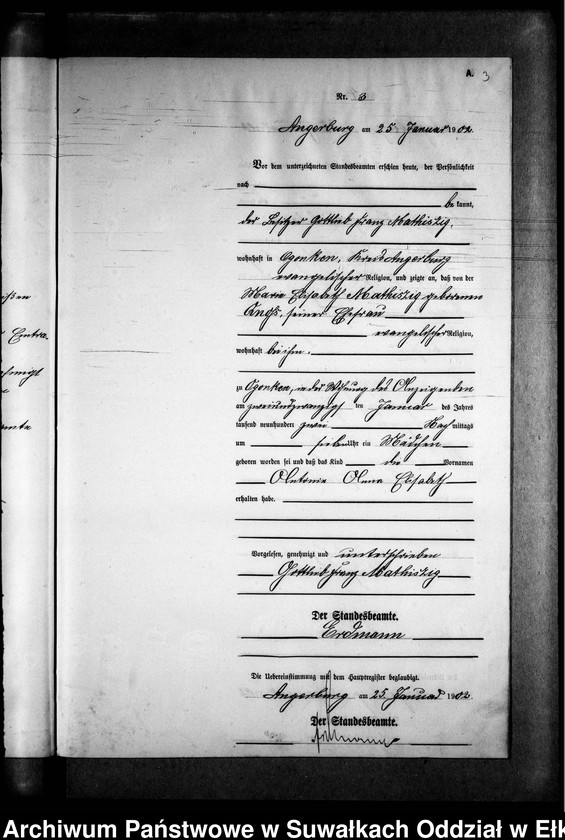 A. 3
Nr. 3
Angerburg am 25 Januar 1902
Vor dem unterzeichneten Standesbeamten erschien heute, der Persönlichkeit
nach
be kannt,
der Besitzer Gottlieb Franz Mathiszig,
wohnhaft in Ogonken, Kreis Angerburg
evangelischer Religion, und zeigte an, daß von der
Marie Elisabeth Mathiszig geborenen
seiner Ehefrau
evangelischer Religion,
wohnhaft bei ihm,
zu Ogonken, in der Wohnung des Anzeigenden
am zweiundzwanzigsten Januar des Jahres
tausend neunhundert zwei Nachmittags
um sieben Uhr ein Mädchen
geboren worden sei und daß das Kind die Vornamen
Antonie Anna Elisabeth
erhalten habe.
Vorgelesen, genehmigt und unterschrieben
Gottlieb Franz Mathiszig
Der Standesbeamte.
Erdmann
Die Uebereinstimmung mit dem Hauptregister beglaubigt.
Angerburg am 25. Januar 1902.
Der Standesbeamte.
Erdmann
Archiwum Państwowe w Suwałkach Oddział w Ełk